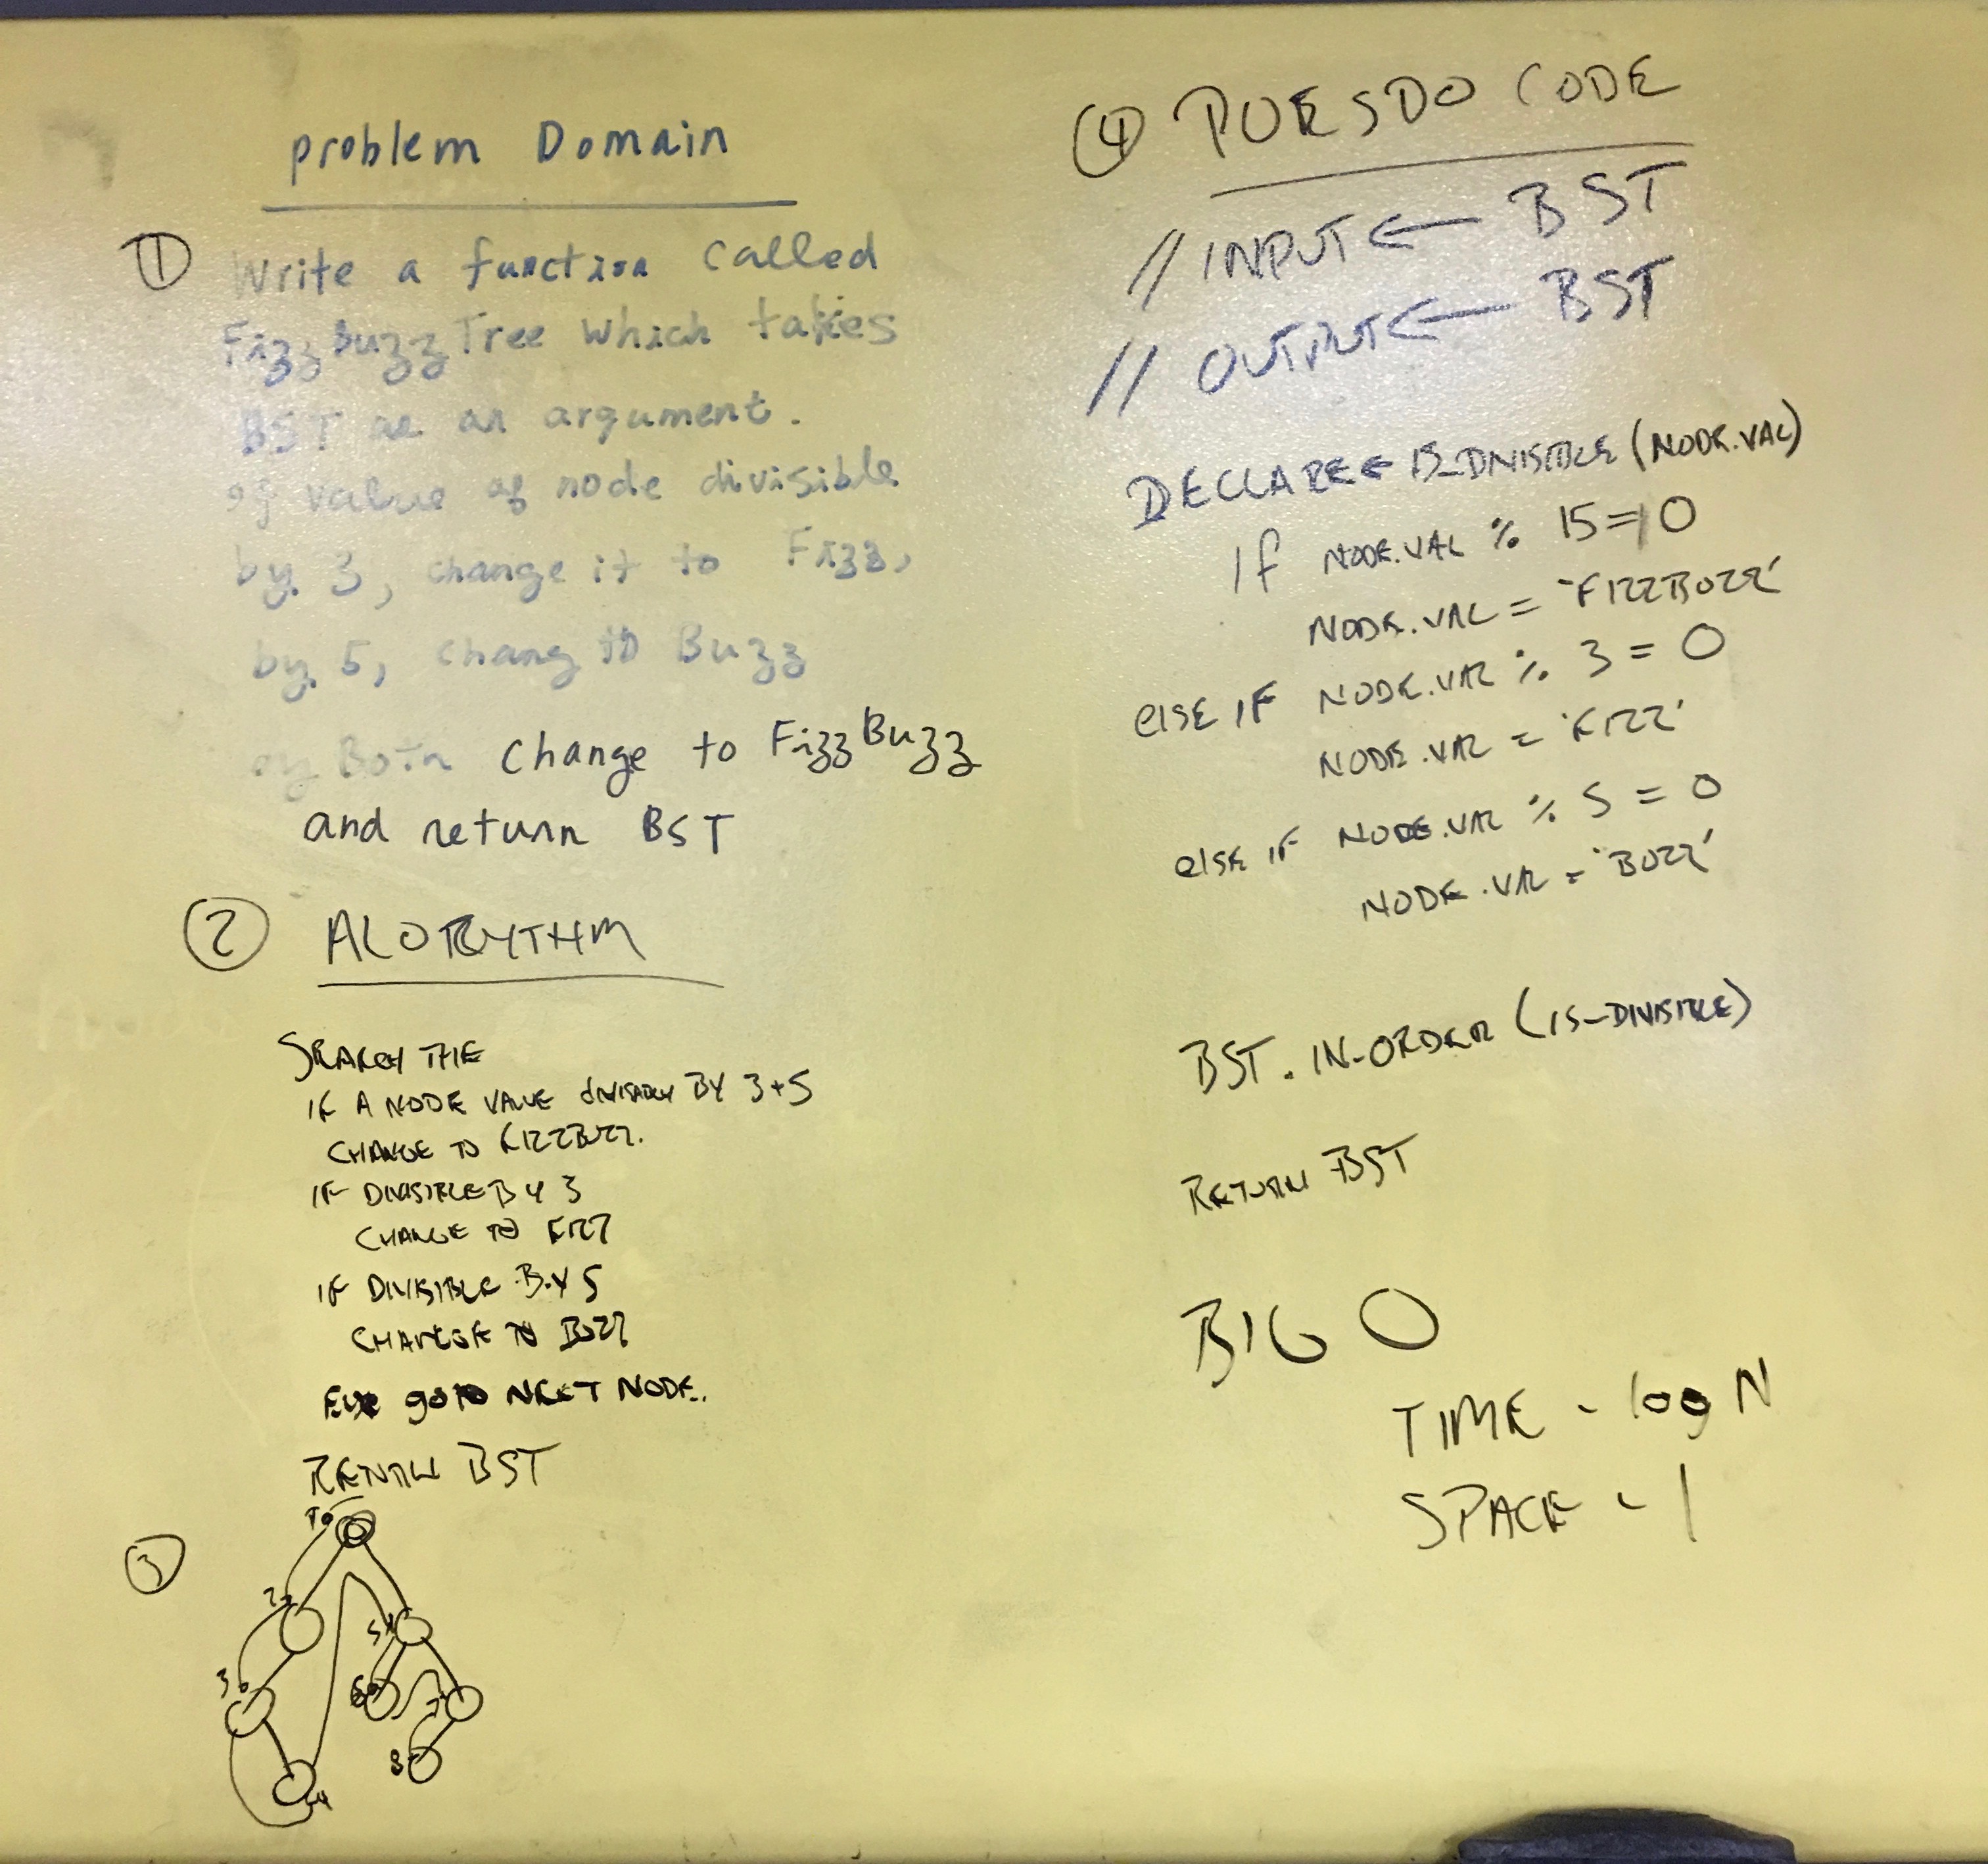 problem Domain
① Write a function called
FizzBuzzTree which takes
BST as an argument.
If value of node divisible
by 3, change it to Fizz,
by 5, chang to Buzz
by Both change to FizzBuzz
and return BST
② ALORYTHM
SEARCH THE
IF A NODE VALUE BY 3+5
CHANGE TO FIZZBUZZ.
IF DIVISIBLE BY 3
CHANGE TO FIZZ
IF DIVISIBLE BY 5
CHANGE TO BUZZ
ELSE go to NEXT NODE.
RETURN BST
③
1
2
3
4
5
6
7
8
④ PUESDO CODE
// INPUT ← BST
// OUTPUT ← BST
DECLARE ← IS_DIVISIBLE (NODE.VAL)
If NODE.VAL % 15 = 0
NODE.VAL = 'FIZZBUZZ'
else IF NODE.VAL % 3 = 0
NODE.VAL = 'FIZZ'
else IF NODE.VAL % 5 = 0
NODE.VAL = 'BUZZ'
BST.IN-ORDER (IS-DIVISIBLE)
RETURN BST
BIG O
TIME - log N
SPACE - 1